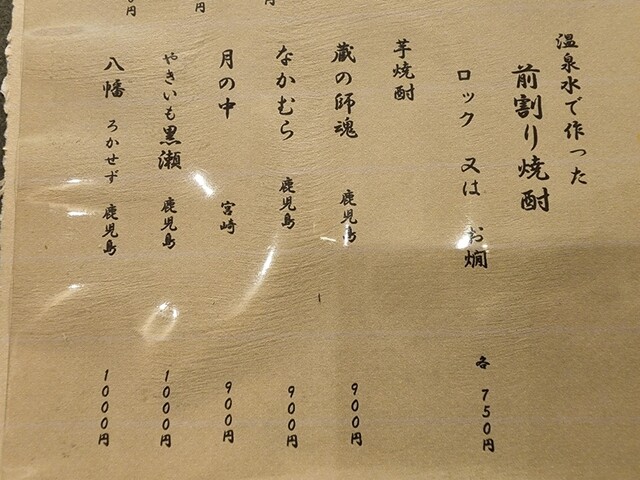 温泉水で作った
前割り焼酎
ロック 又は お燗 各 750円
芋焼酎
蔵の師魂 鹿児島 900円
なかむら 鹿児島 900円
月の中 宮崎 900円
やきいも黒瀬 鹿児島 1000円
八幡 ろかせず 鹿児島 1000円